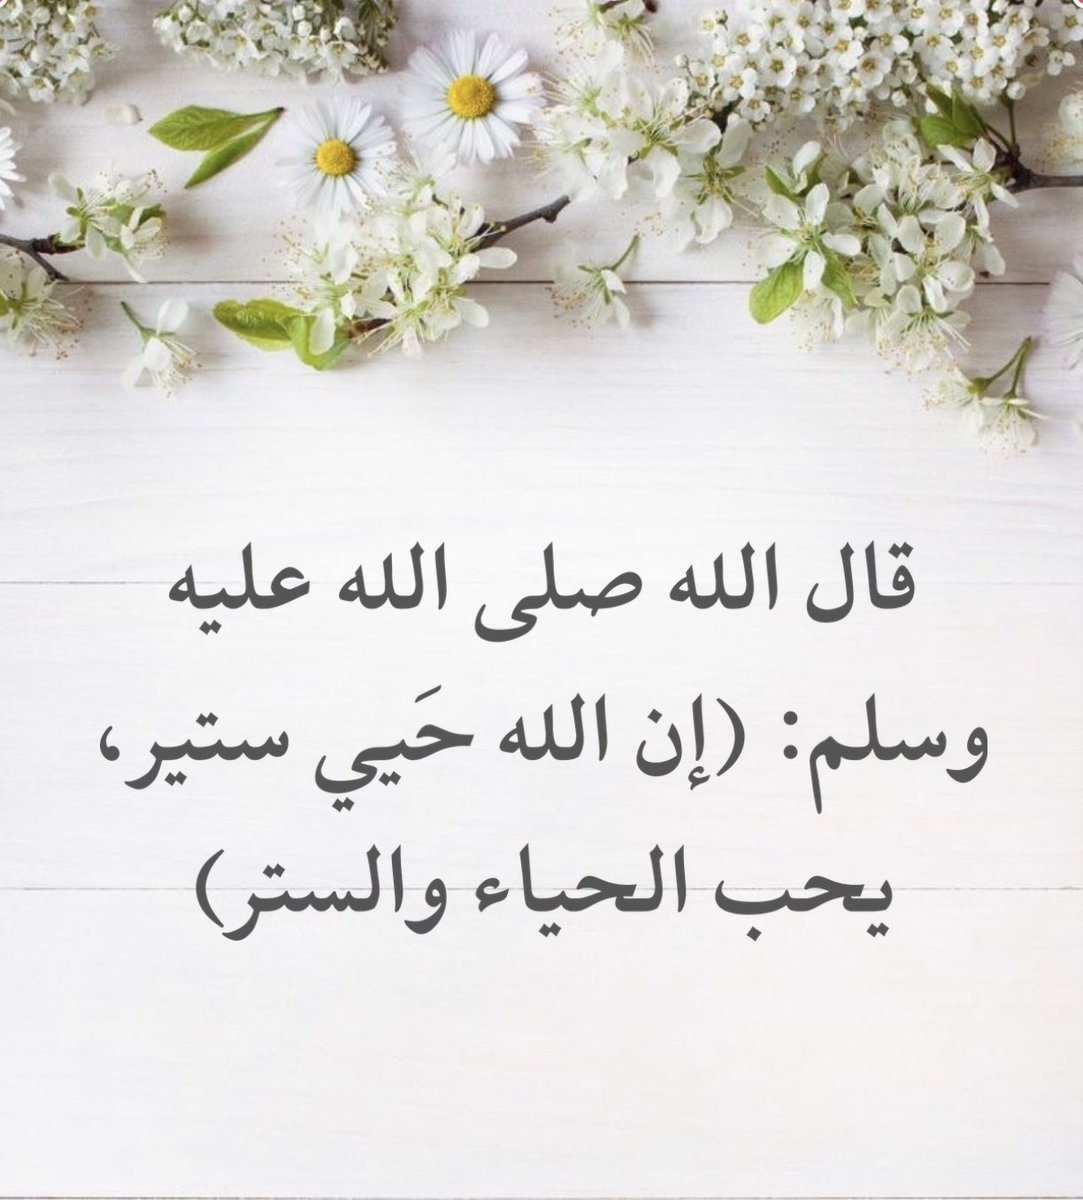 قال الله صلى الله عليه
وسلم: (إن الله حَيي ستير،
يحب الحياء والستر)